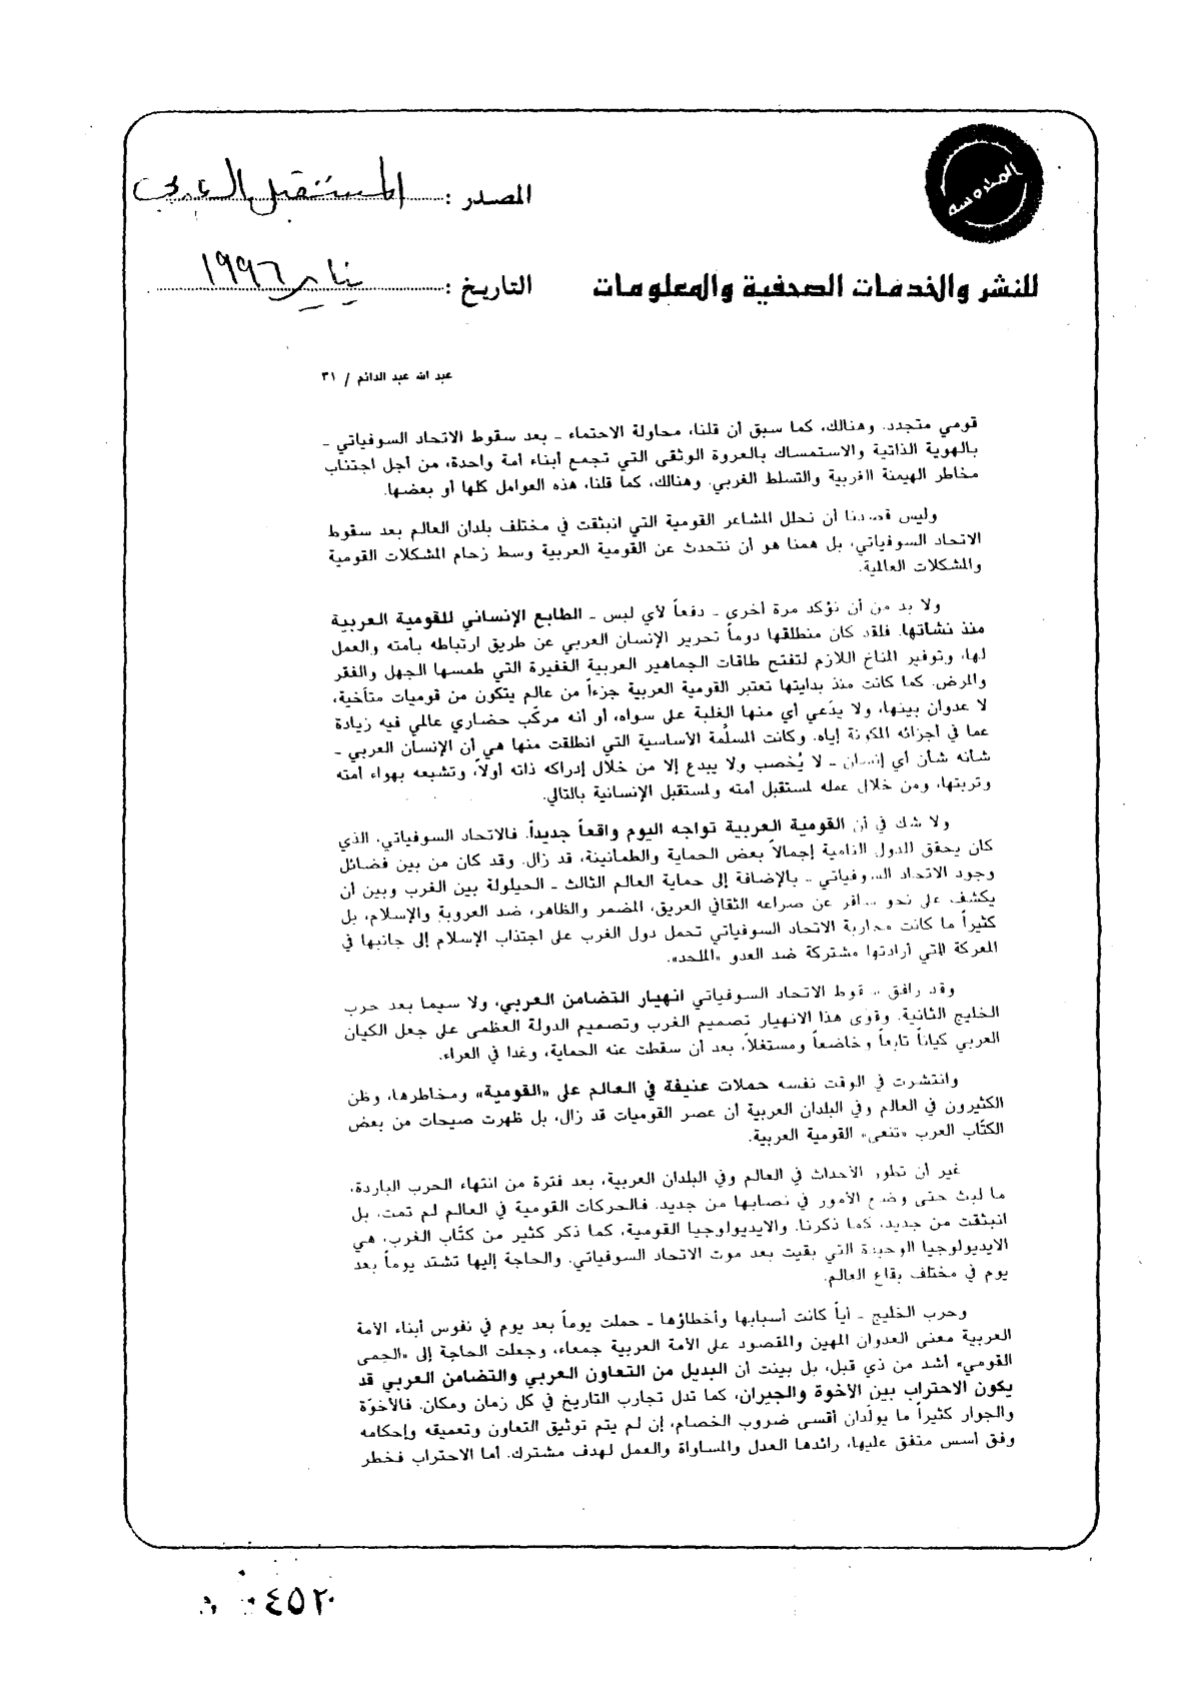 المصدر : المستقبل العربي
للنشر والخدمات الصحفية والمعلومات
التاريخ : يناير ١٩٩٦
عبد الله عبد الدائم / ٣١
قومي متجدد. وهنالك، كما سبق أن قلنا، محاولة الاحتماء - بعد سقوط الاتحاد السوفياتي -
بالهوية الذاتية والاستمساك بالعروة الوثقى التي تجمع أبناء أمة واحدة، من أجل اجتناب
مخاطر الهيمنة الغربية والتسلط الغربي. وهنالك، كما قلنا، هذه العوامل كلها أو بعضها.
وليس قصدنا أن نحلل المشاعر القومية التي انبثقت في مختلف بلدان العالم بعد سقوط
الاتحاد السوفياتي، بل همنا هو أن نتحدث عن القومية العربية وسط زحام المشكلات القومية
والمشكلات العالمية.
ولا بد من أن نؤكد مرة أخرى - دفعاً لأي لبس - الطابع الإنساني للقومية العربية
منذ نشأتها. فلقد كان منطلقها دوماً تحرير الإنسان العربي عن طريق ارتباطه بأمته والعمل
لها، وتوفير المناخ اللازم لتفتح طاقات الجماهير العربية الغفيرة التي طمسها الجهل والفقر
والمرض. كما كانت منذ بدايتها تعتبر القومية العربية جزءاً من عالم يتكون من قوميات متآخية،
لا عدوان بينها، ولا يدّعي أي منها الغلبة على سواه، أو أنه مركّب حضاري عالمي فيه زيادة
عما في أجزائه المكونة إياه. وكانت المسلّمة الأساسية التي انطلقت منها هي أن الإنسان العربي -
شأنه شأن أي إنسان - لا يُخصب ولا يبدع إلا من خلال إدراكه ذاته أولاً، وتشبعه بهواء أمته
وتربتها، ومن خلال عمله لمستقبل أمته ولمستقبل الإنسانية بالتالي.
ولا شك في أن القومية العربية تواجه اليوم واقعاً جديداً. فالاتحاد السوفياتي، الذي
كان يحقق للدول النامية إجمالاً بعض الحماية والطمأنينة، قد زال. وقد كان من بين فضائل
وجود الاتحاد السوفياتي - بالإضافة إلى حماية العالم الثالث - الحيلولة بين الغرب وبين أن
يكشف على نحو سافر عن صراعه الثقافي العريق، المضمر والظاهر، ضد العروبة والإسلام، بل
كثيراً ما كانت محاربة الاتحاد السوفياتي تحمل دول الغرب على اجتذاب الإسلام إلى جانبها في
المعركة التي أرادتها مشتركة ضد العدو «الملحد».
وقد رافق سقوط الاتحاد السوفياتي انهيار التضامن العربي، ولا سيما بعد حرب
الخليج الثانية. وقوى هذا الانهيار تصميم الغرب وتصميم الدولة العظمى على جعل الكيان
العربي كياناً تابعاً وخاضعاً ومستغلاً، بعد أن سقطت عنه الحماية، وغدا في العراء.
وانتشرت في الوقت نفسه حملات عنيفة في العالم على «القومية» ومخاطرها، وظن
الكثيرون في العالم وفي البلدان العربية أن عصر القوميات قد زال، بل ظهرت صيحات من بعض
الكتّاب العرب «تنعى» القومية العربية.
غير أن تطور الأحداث في العالم وفي البلدان العربية، بعد فترة من انتهاء الحرب الباردة،
ما لبث حتى وضع الأمور في نصابها من جديد. فالحركات القومية في العالم لم تمت، بل
انبثقت من جديد، كما ذكرنا. والايديولوجيا القومية، كما ذكر كثير من كتّاب الغرب، هي
الايديولوجيا الوحيدة التي بقيت بعد موت الاتحاد السوفياتي. والحاجة إليها تشتد يوماً بعد
يوم في مختلف بقاع العالم.
وحرب الخليج - أياً كانت أسبابها وأخطاؤها - حملت يوماً بعد يوم في نفوس أبناء الأمة
العربية معنى العدوان المهين والمقصود على الأمة العربية جمعاء، وجعلت الحاجة إلى «الحمى
القومي» أشد من ذي قبل، بل بينت أن البديل من التعاون العربي والتضامن العربي قد
يكون الاحتراب بين الأخوة والجيران، كما تدل تجارب التاريخ في كل زمان ومكان. فالأخوّة
والجوار كثيراً ما يولّدان أقسى ضروب الخصام، إن لم يتم توثيق التعاون وتعميقه وإحكامه
وفق أسس متفق عليها، رائدها العدل والمساواة والعمل لهدف مشترك. أما الاحتراب فخطر